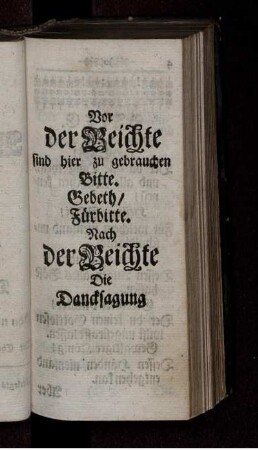 Vor
der Beichte
sind hier zu gebrauchen
Bitte.
Gebeth/
Fürbitte.
Nach
der Beichte
Die
Dancksagung